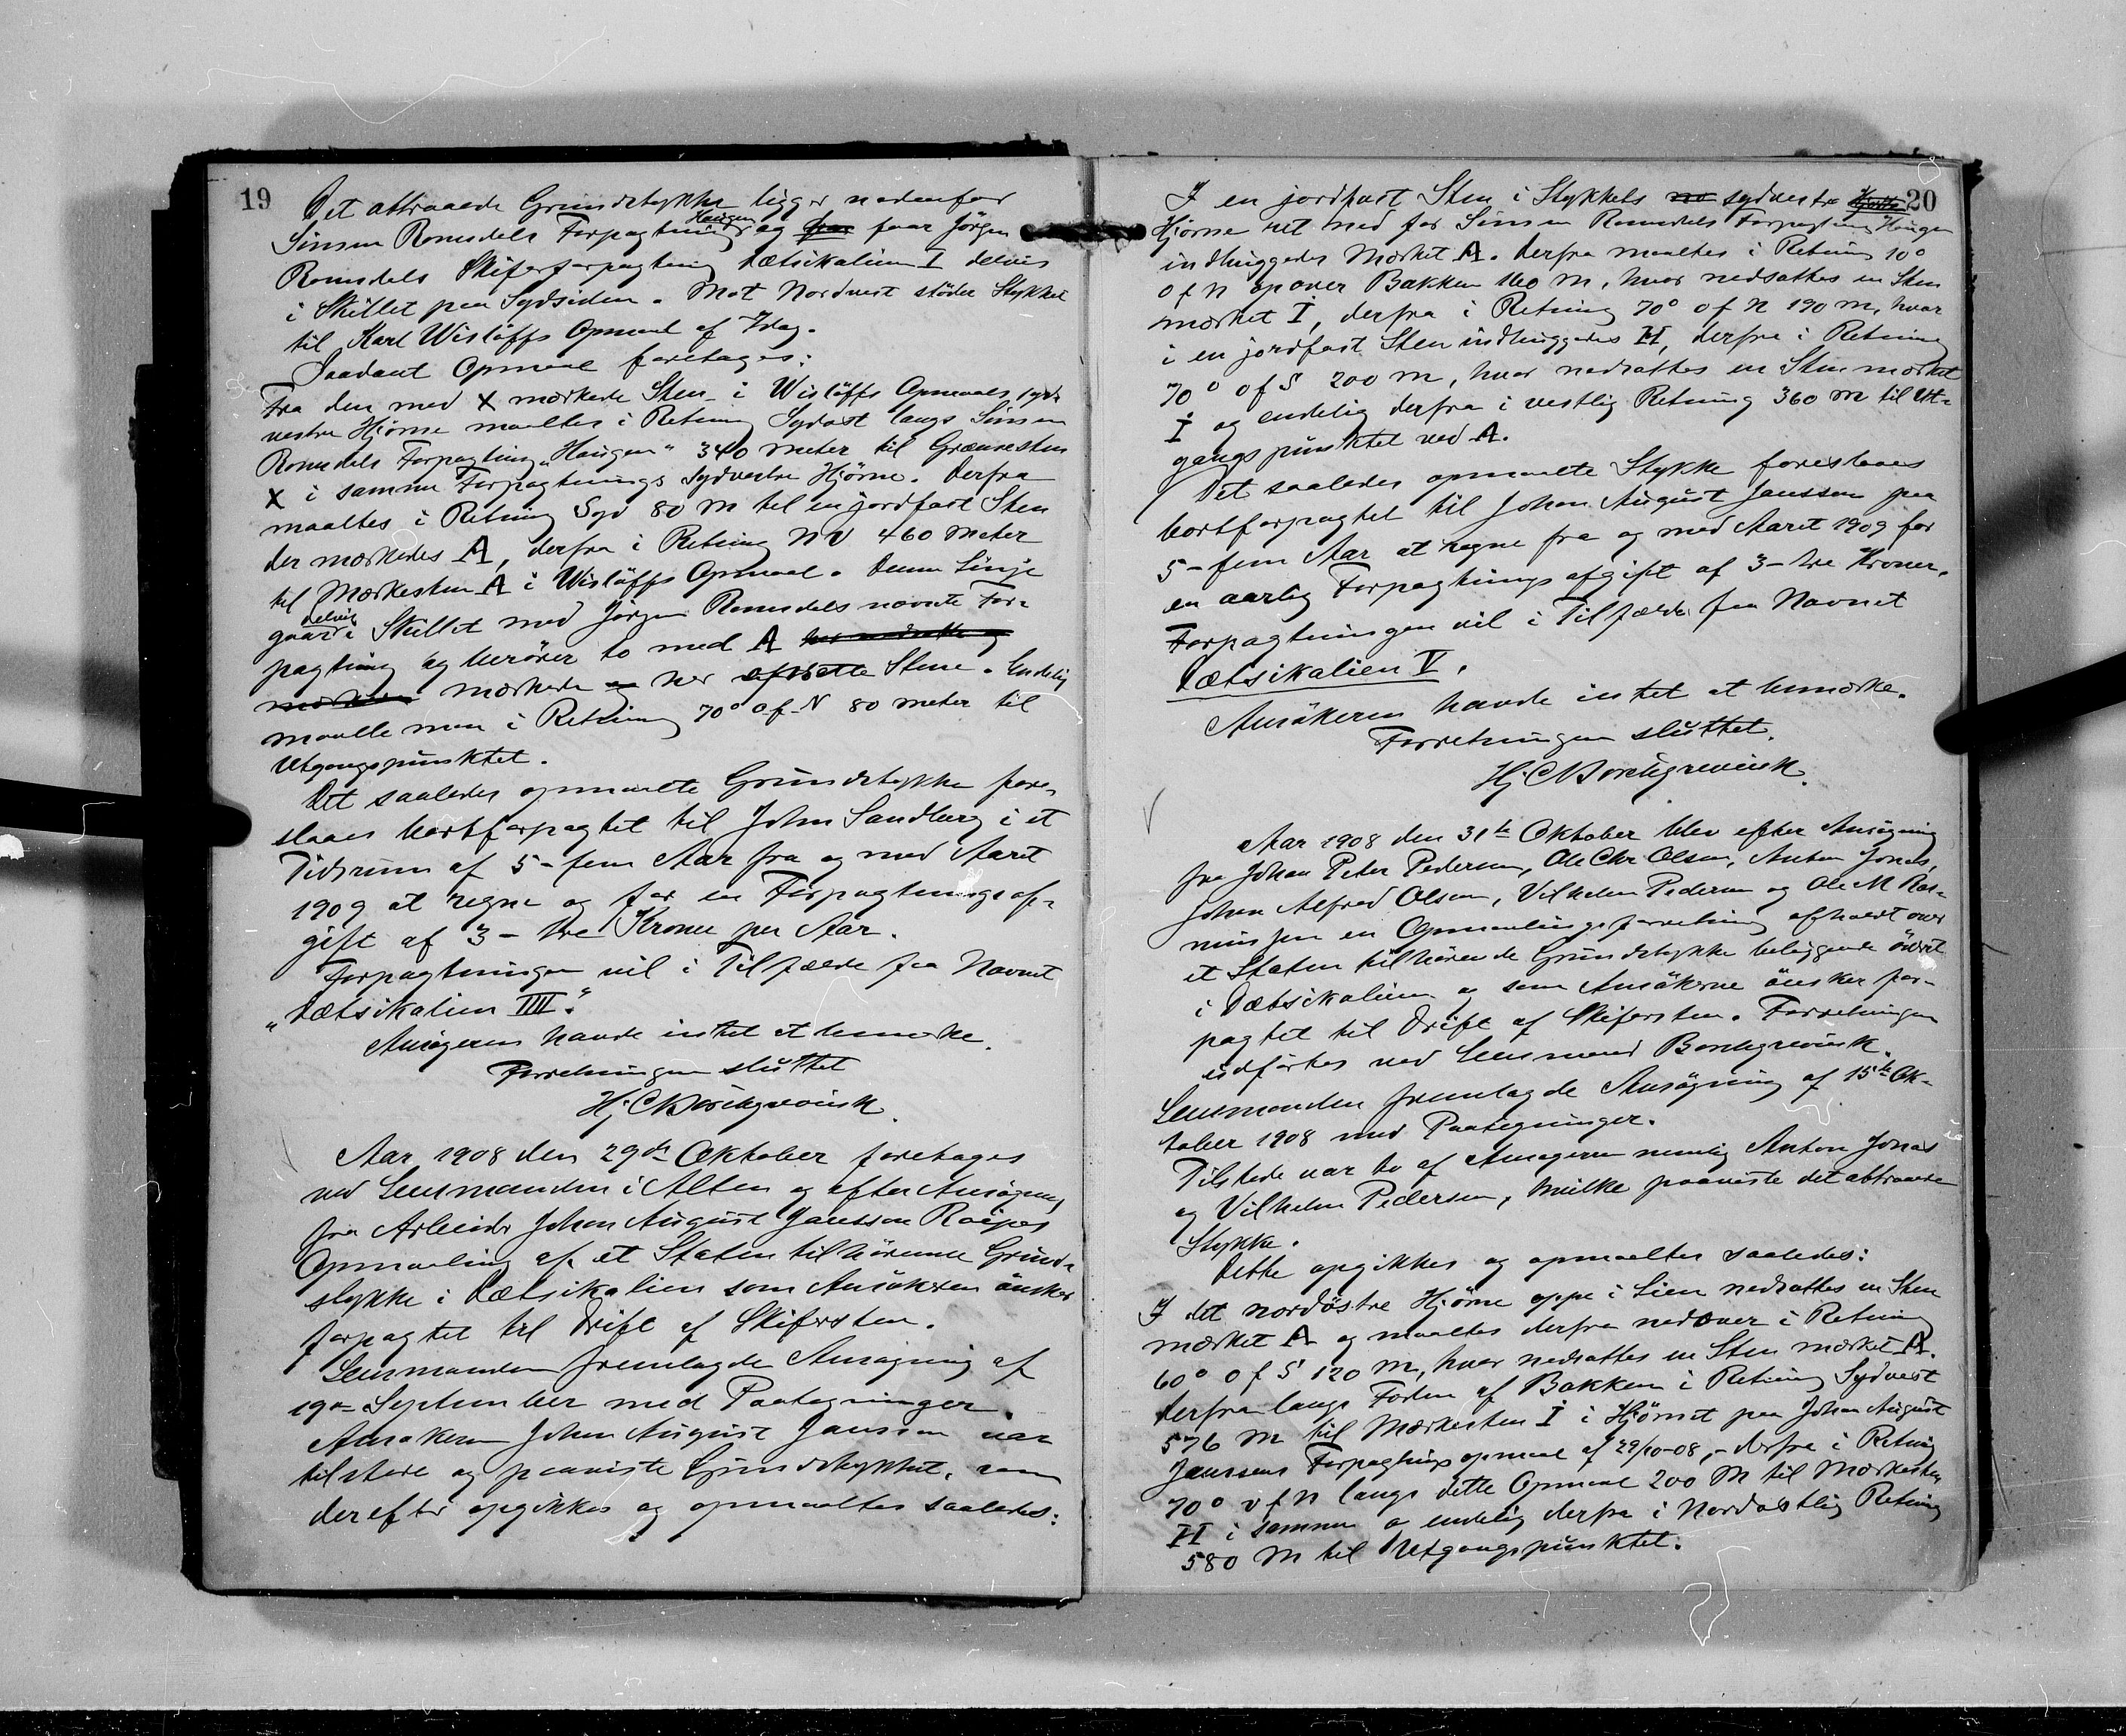 19
Det attraaede Grundstykke ligger nedenfor
Simen Romsdals Forpagtning Haugen og har faar Jörgen
Romsdals Skiferforpagtning Dætsikalien I delvis
i Skillet paa Sydsiden. Mot Nordvest stöder Stykket
til Karl Wislöffs Opmaal af Idag.
Saadant Opmaal foretages:
Fra den med X mærkede Sten i Wislöffs Opmaals syd-
vestre Hjörne maaltes i Retning Sydöst langs Simen
Romsdals Forpagtning "Haugen" 340 meter til Grænsesten
X i samme Forpagtnings sydvestre Hjörne. Derfra
maaltes i Retning Syd 80 m til en jordfast Sten
der mærkedes A, derfra i Retning NV 460 meter
til Mærkesten A i Wislöffs Opmaal. Denne Linje
gaar delvis i Skillet med Jörgen Romsdals nævnte For-
pagtning og berörer to med A her nedsatte og
mærkede mærkede og her nedsatte Stene. Endelig
maalte man i Retning 70° Ø f N 80 meter til
Utgangspunktet.
Det saaledes opmaalte Grundstykke fore-
slaaes bortforpagtet til John Sandberg i et
Tidsrum af 5 - fem Aar fra og med Aaret
1909 at regne og for en Forpagtningsaf-
gift af 3 - tre Kroner per Aar.
Forpagtningen vil i Tilfælde faa Navnet
"Dætsikalien IIII".
Ansögeren havde intet at bemerke.
Forretningen sluttet
Hj C Borchgrevink.
Aar 1908 den 29de Oktober foretages
ved Lensmanden i Alten og efter Ansögning
fra Arbeider Johan August Janssen Raipas
Opmaaling af et Staten tilhörende Grund-
stykke i Dætsikalien som Ansökeren önsker
forpagtet til Drift af Skifersten.
Lensmanden fremlagde Ansögning af
19de September med Paategninger.
Ansökeren Johan August Janssen var
tilstede og paaviste Grundstykket, som
derefter opgikkes og opmaaltes saaledes:
20
I en jordfast Sten i Stykkets no sydvestre
Hjörne ret ned for Simen Romsdals Forpagtning Haugen
indhuggedes Mærket A. Derfra maaltes i Retning 10°
Ø f N opover Bakken 160 m, hvor nedsattes en Sten
mærket I, derfra i Retning 70° Ø f N 190 m, hvor
i en jordfast Sten indhuggedes H, derfra i Retning
70° Ø f S 200 m, hvor nedsattes en Sten mærket
I og endelig derfra i vestlig Retning 360 m til Ut-
gangspunktet ved A.
Det saaledes opmaalte Stykke foreslaaes
bortforpagtet til Johan August Janssen paa
5 - fem Aar at regne fra og med Aaret 1909 for
en aarlig Forpagtningsafgift af 3 - tre Kroner.
Forpagtningen vil i Tilfælde faa Navnet
Dætsikalien V.
Ansökeren havde intet at bemærke.
Forretningen sluttet.
Hj C Borchgrevink.
Aar 1908 den 31te Oktober blev efter Ansögning
fra Johan Peter Pedersen, Ole Chr Olsen, Anton Jonas,
Johan Alfred Olsen, Vilhelm Pedersen og Ole M Ras-
mussen en Opmaalingsforretning afholdt over
et Staten tilhörende Grundstykke beliggende överst
i Dætsikalien og som Ansökerne önsker for-
pagtet til Drift af Skifersten. Forretningen
udförtes ved Lensmand Borchgrevink.
Lensmanden fremlagde Ansögning af 15de Ok-
tober 1908 med Paategninger.
Tilstede var to af Ansögerne nemlig Anton Jonas
og Vilhelm Pedersen, hvilke paaviste det attraaede
Stykke.
Dette opgikkes og opmaaltes saaledes:
I det nordöstre Hjörne oppe i Lien nedsattes en Sten
mærket A og maaltes derfra nedover i Retning
60° Ø f S 120 m, hvor nedsattes en Sten mærket A.
Derfra langs Foden af Bakken i Retning Sydvest
576 m til Mærkesten I i Hjörnet paa Johan August
Janssens Forpagtningsopmaal af 29/10-08, - derfra i Retning
70° v f N langs dette Opmaal 200 m til Mærkesten
H i samme o endelig derfra i Nordöstlig Retning
580 m til Utgangspunktet.